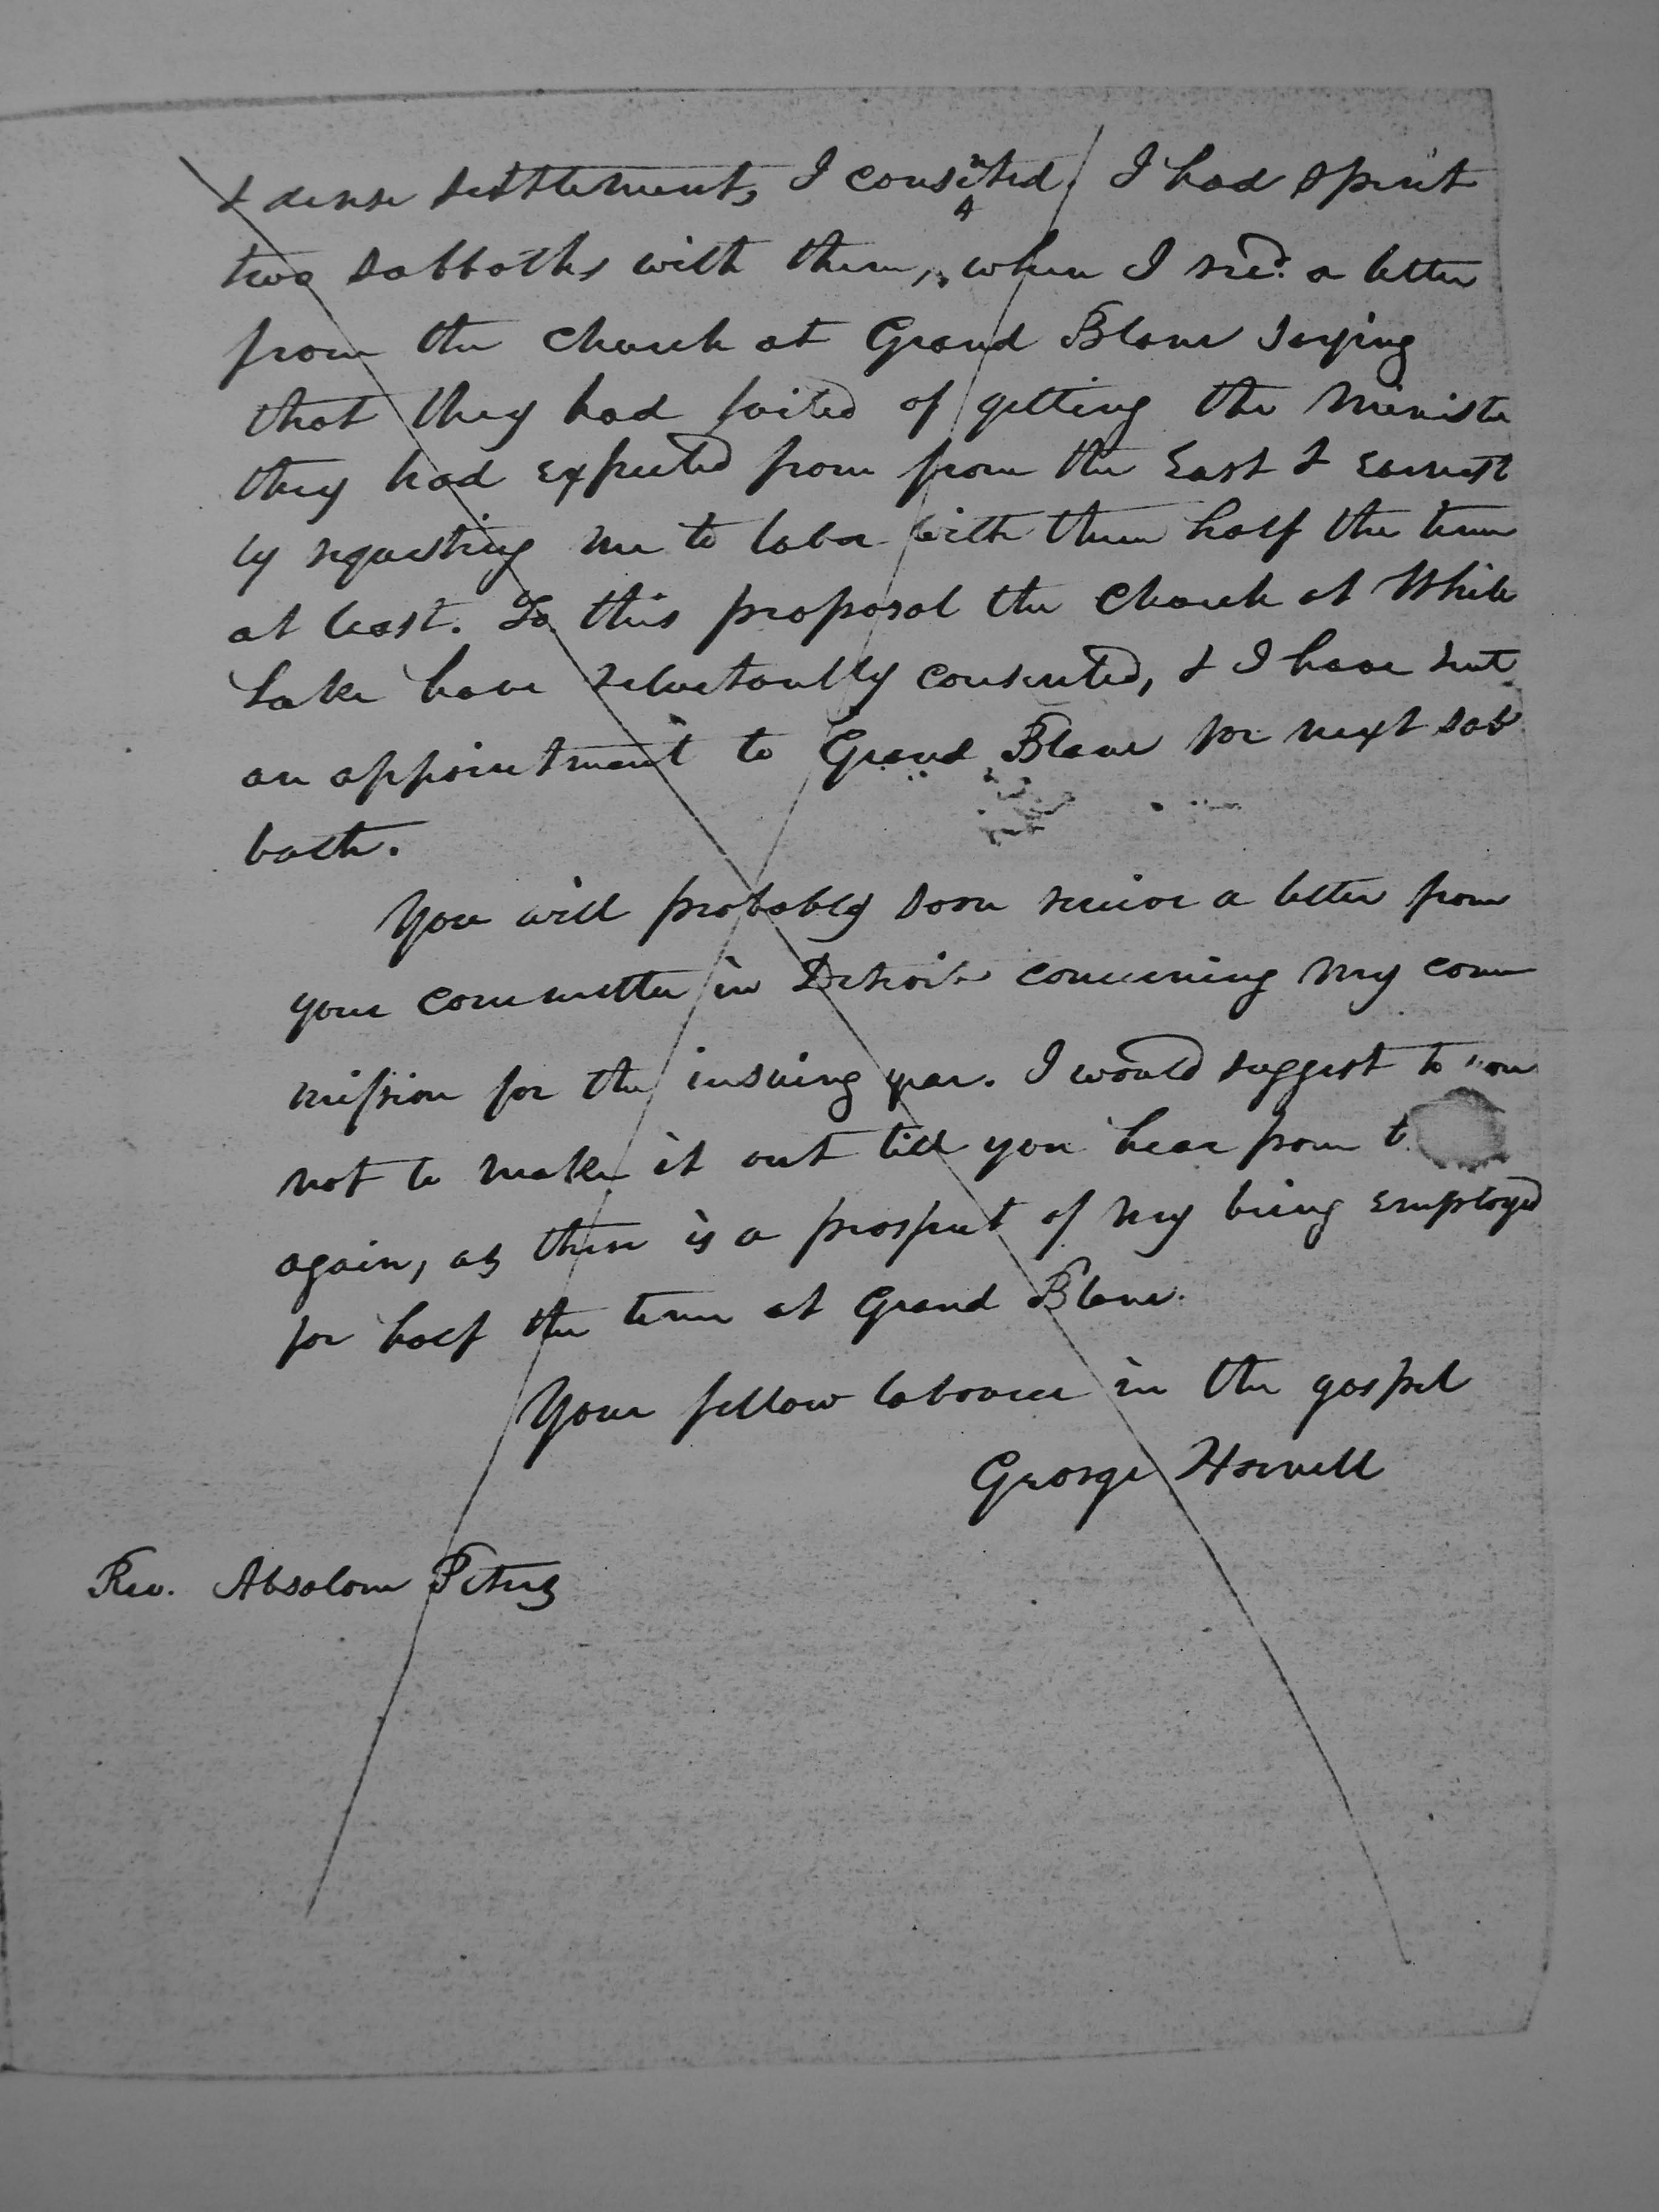 & dense settlement, I consented. I had spent
two sabbaths with them, when I recd. a letter
from the church at Grand Blanc saying
that they had failed of getting the Ministe
they had expected from from the East & earnest
ly requesting me to labor with them half the time
at least. To this proposal the Church at White
Lake have reluctantly consented, & I have sent
an appointment to Grand Blanc for next sab
bath.
You will probably soon receive a letter from
your committee in Detroit concerning my com
mission for the insuing year. I would suggest to
not to make it out till you hear from
again, as there is a prospect of my being employed
for half the time at Grand Blanc.
Your fellow labourer in the gospel
George Hornell
Rev. Absolom Peters